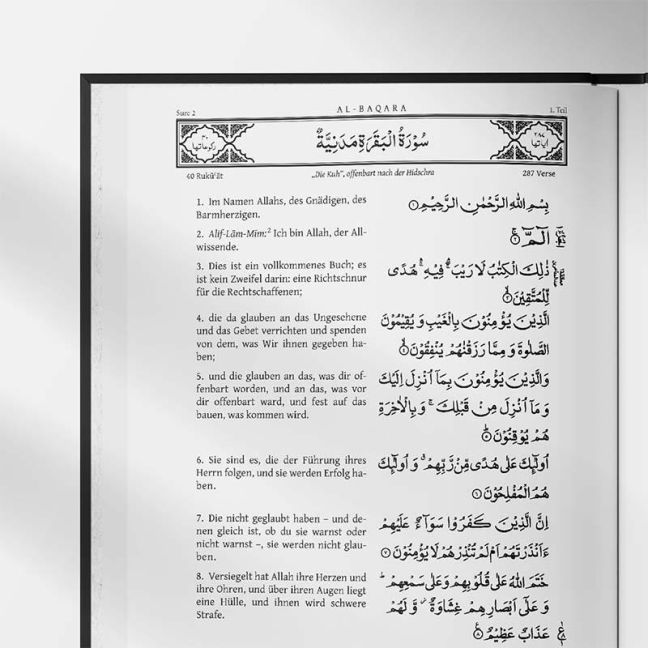 Sure 2
AL-BAQARA
1. Teil
٤٠
ركوعاتها
سُوْرَةُ الْبَقَرَةِ مَدَنِيَّةٌ
٢٨٧
اٰياتها
40 Rukūʿāt
„Die Kuh“, offenbart nach der Hidschra
287 Verse
1. Im Namen Allahs, des Gnädigen, des
Barmherzigen.
2. Alif-Lām-Mīm:² Ich bin Allah, der All-
wissende.
3. Dies ist ein vollkommenes Buch; es
ist kein Zweifel darin: eine Richtschnur
für die Rechtschaffenen;
4. die da glauben an das Ungesehene
und das Gebet verrichten und spenden
von dem, was Wir ihnen gegeben ha-
ben;
5. und die glauben an das, was dir of-
fenbart worden, und an das, was vor
dir offenbart ward, und fest auf das
bauen, was kommen wird.
6. Sie sind es, die der Führung ihres
Herrn folgen, und sie werden Erfolg ha-
ben.
7. Die nicht geglaubt haben – und de-
nen gleich ist, ob du sie warnst oder
nicht warnst –, sie werden nicht glau-
ben.
8. Versiegelt hat Allah ihre Herzen und
ihre Ohren, und über ihren Augen liegt
eine Hülle, und ihnen wird schwere
Strafe.
بِسْمِ اللّٰهِ الرَّحْمٰنِ الرَّحِيْمِ ①
الٓمّٓ ②
ذٰلِكَ الْكِتٰبُ لَا رَيْبَ ۛۖ فِيْهِ ۛۚ هُدًى
لِّلْمُتَّقِيْنَ ③
الَّذِيْنَ يُؤْمِنُوْنَ بِالْغَيْبِ وَ يُقِيْمُوْنَ
الصَّلٰوةَ وَ مِمَّا رَزَقْنٰهُمْ يُنْفِقُوْنَ ④
وَالَّذِيْنَ يُؤْمِنُوْنَ بِمَاۤ اُنْزِلَ اِلَيْكَ
وَ مَاۤ اُنْزِلَ مِنْ قَبْلِكَ ۚ وَ بِالْاٰخِرَةِ
هُمْ يُوْقِنُوْنَ ⑤
اُولٰٓئِكَ عَلٰى هُدًى مِّنْ رَّبِّهِمْ ۙ وَ اُولٰٓئِكَ
هُمُ الْمُفْلِحُوْنَ ⑥
اِنَّ الَّذِيْنَ كَفَرُوْا سَوَآءٌ عَلَيْهِمْ
ءَاَنْذَرْتَهُمْ اَمْ لَمْ تُنْذِرْهُمْ لَا يُؤْمِنُوْنَ ⑦
خَتَمَ اللّٰهُ عَلٰى قُلُوْبِهِمْ وَ عَلٰى سَمْعِهِمْ ؕ
وَ عَلٰۤى اَبْصَارِهِمْ غِشَاوَةٌ ۫ وَّ لَهُمْ
عَذَابٌ عَظِيْمٌ ⑧